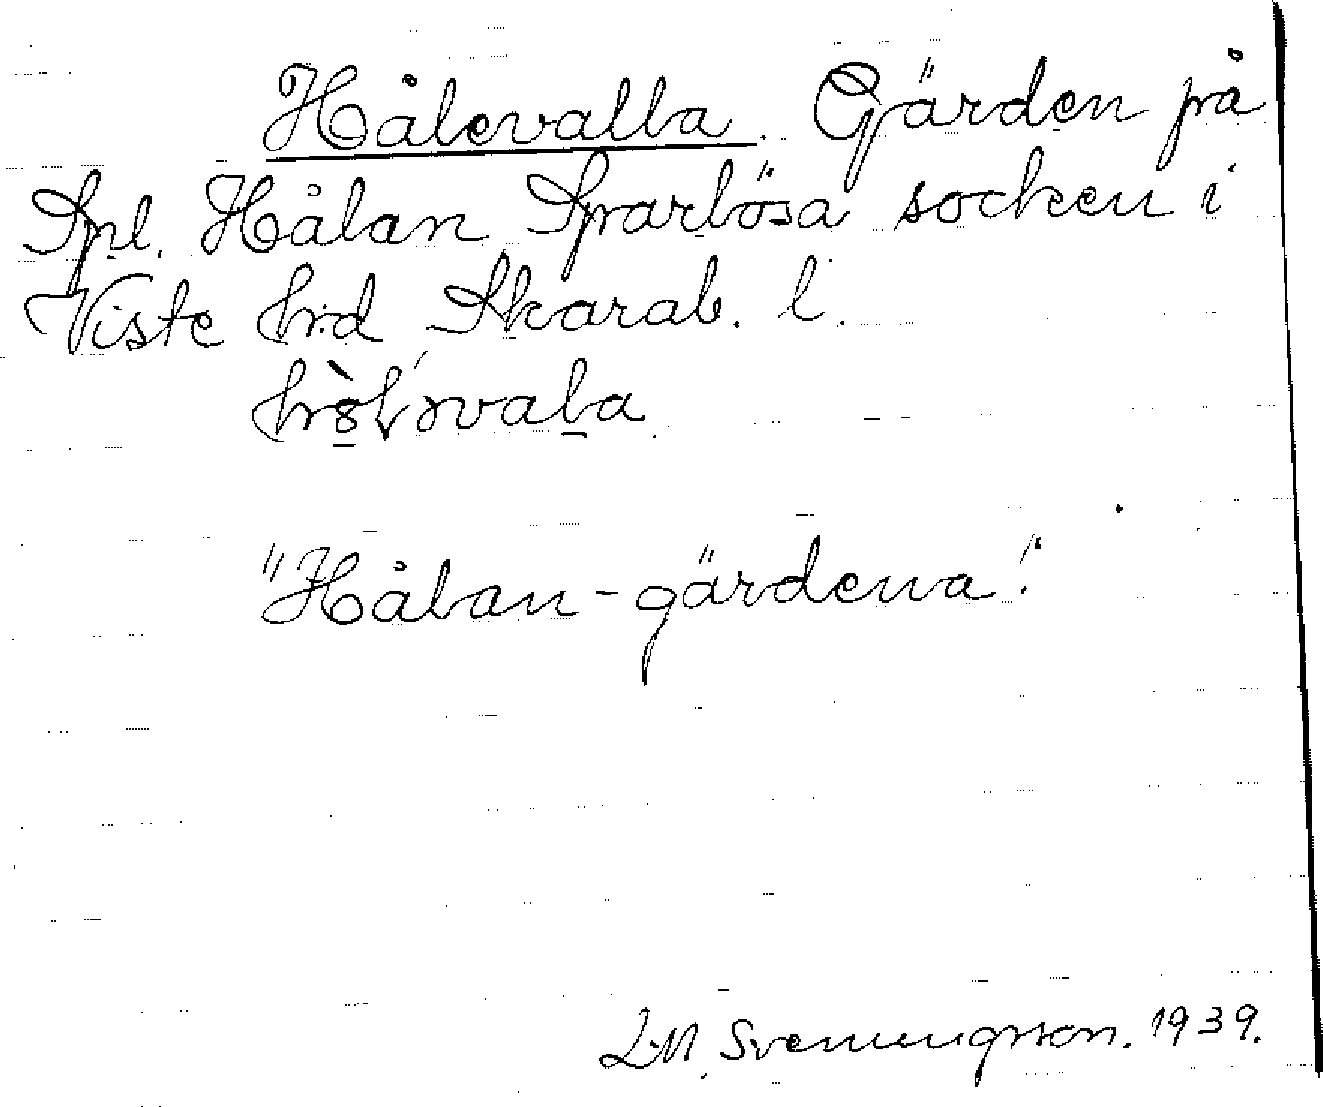 Hålevalla. Gärden på
Spl. Hålan Sparlösa socken i
Viste hrd, Skarab. l.
"Hålan-gärdena".
L.M. Svenungsson. 1939.